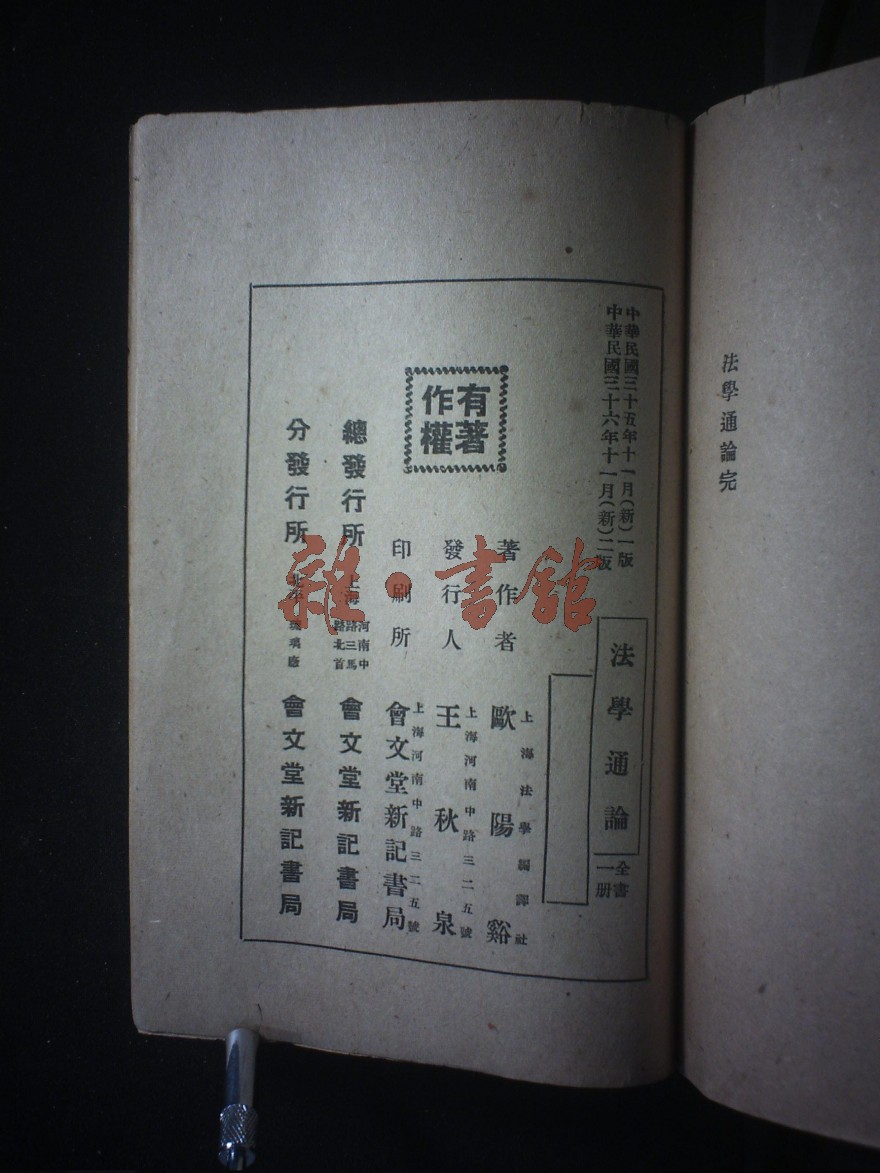 法學通論完
中華民國三十五年十一月(新)一版
中華民國三十六年十一月(新)二版
法學通論
全書
一册
上海法學編譯社
著作者 歐陽谿
上海河南中路三二五號
發行人 王秋泉
上海河南中路三二五號
印刷所 會文堂新記書局
有著
作權
總發行所 上海 河南中
路三馬
路北首 會文堂新記書局
分發行所 北平 琉璃廠 會文堂新記書局
雜·書館